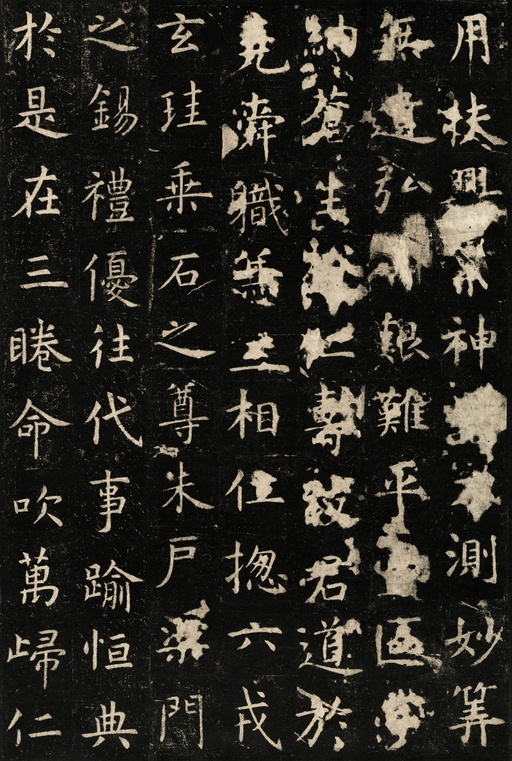 用扶興神不測妙筭
無遺弘艱難平區宇
納蒼生於仁壽致君道於
堯舜職兼三相位揔六戎
玄珪乘石之尊朱戶渠門
之錫禮優往代事踰恒典
於是在三睠命吹萬歸仁